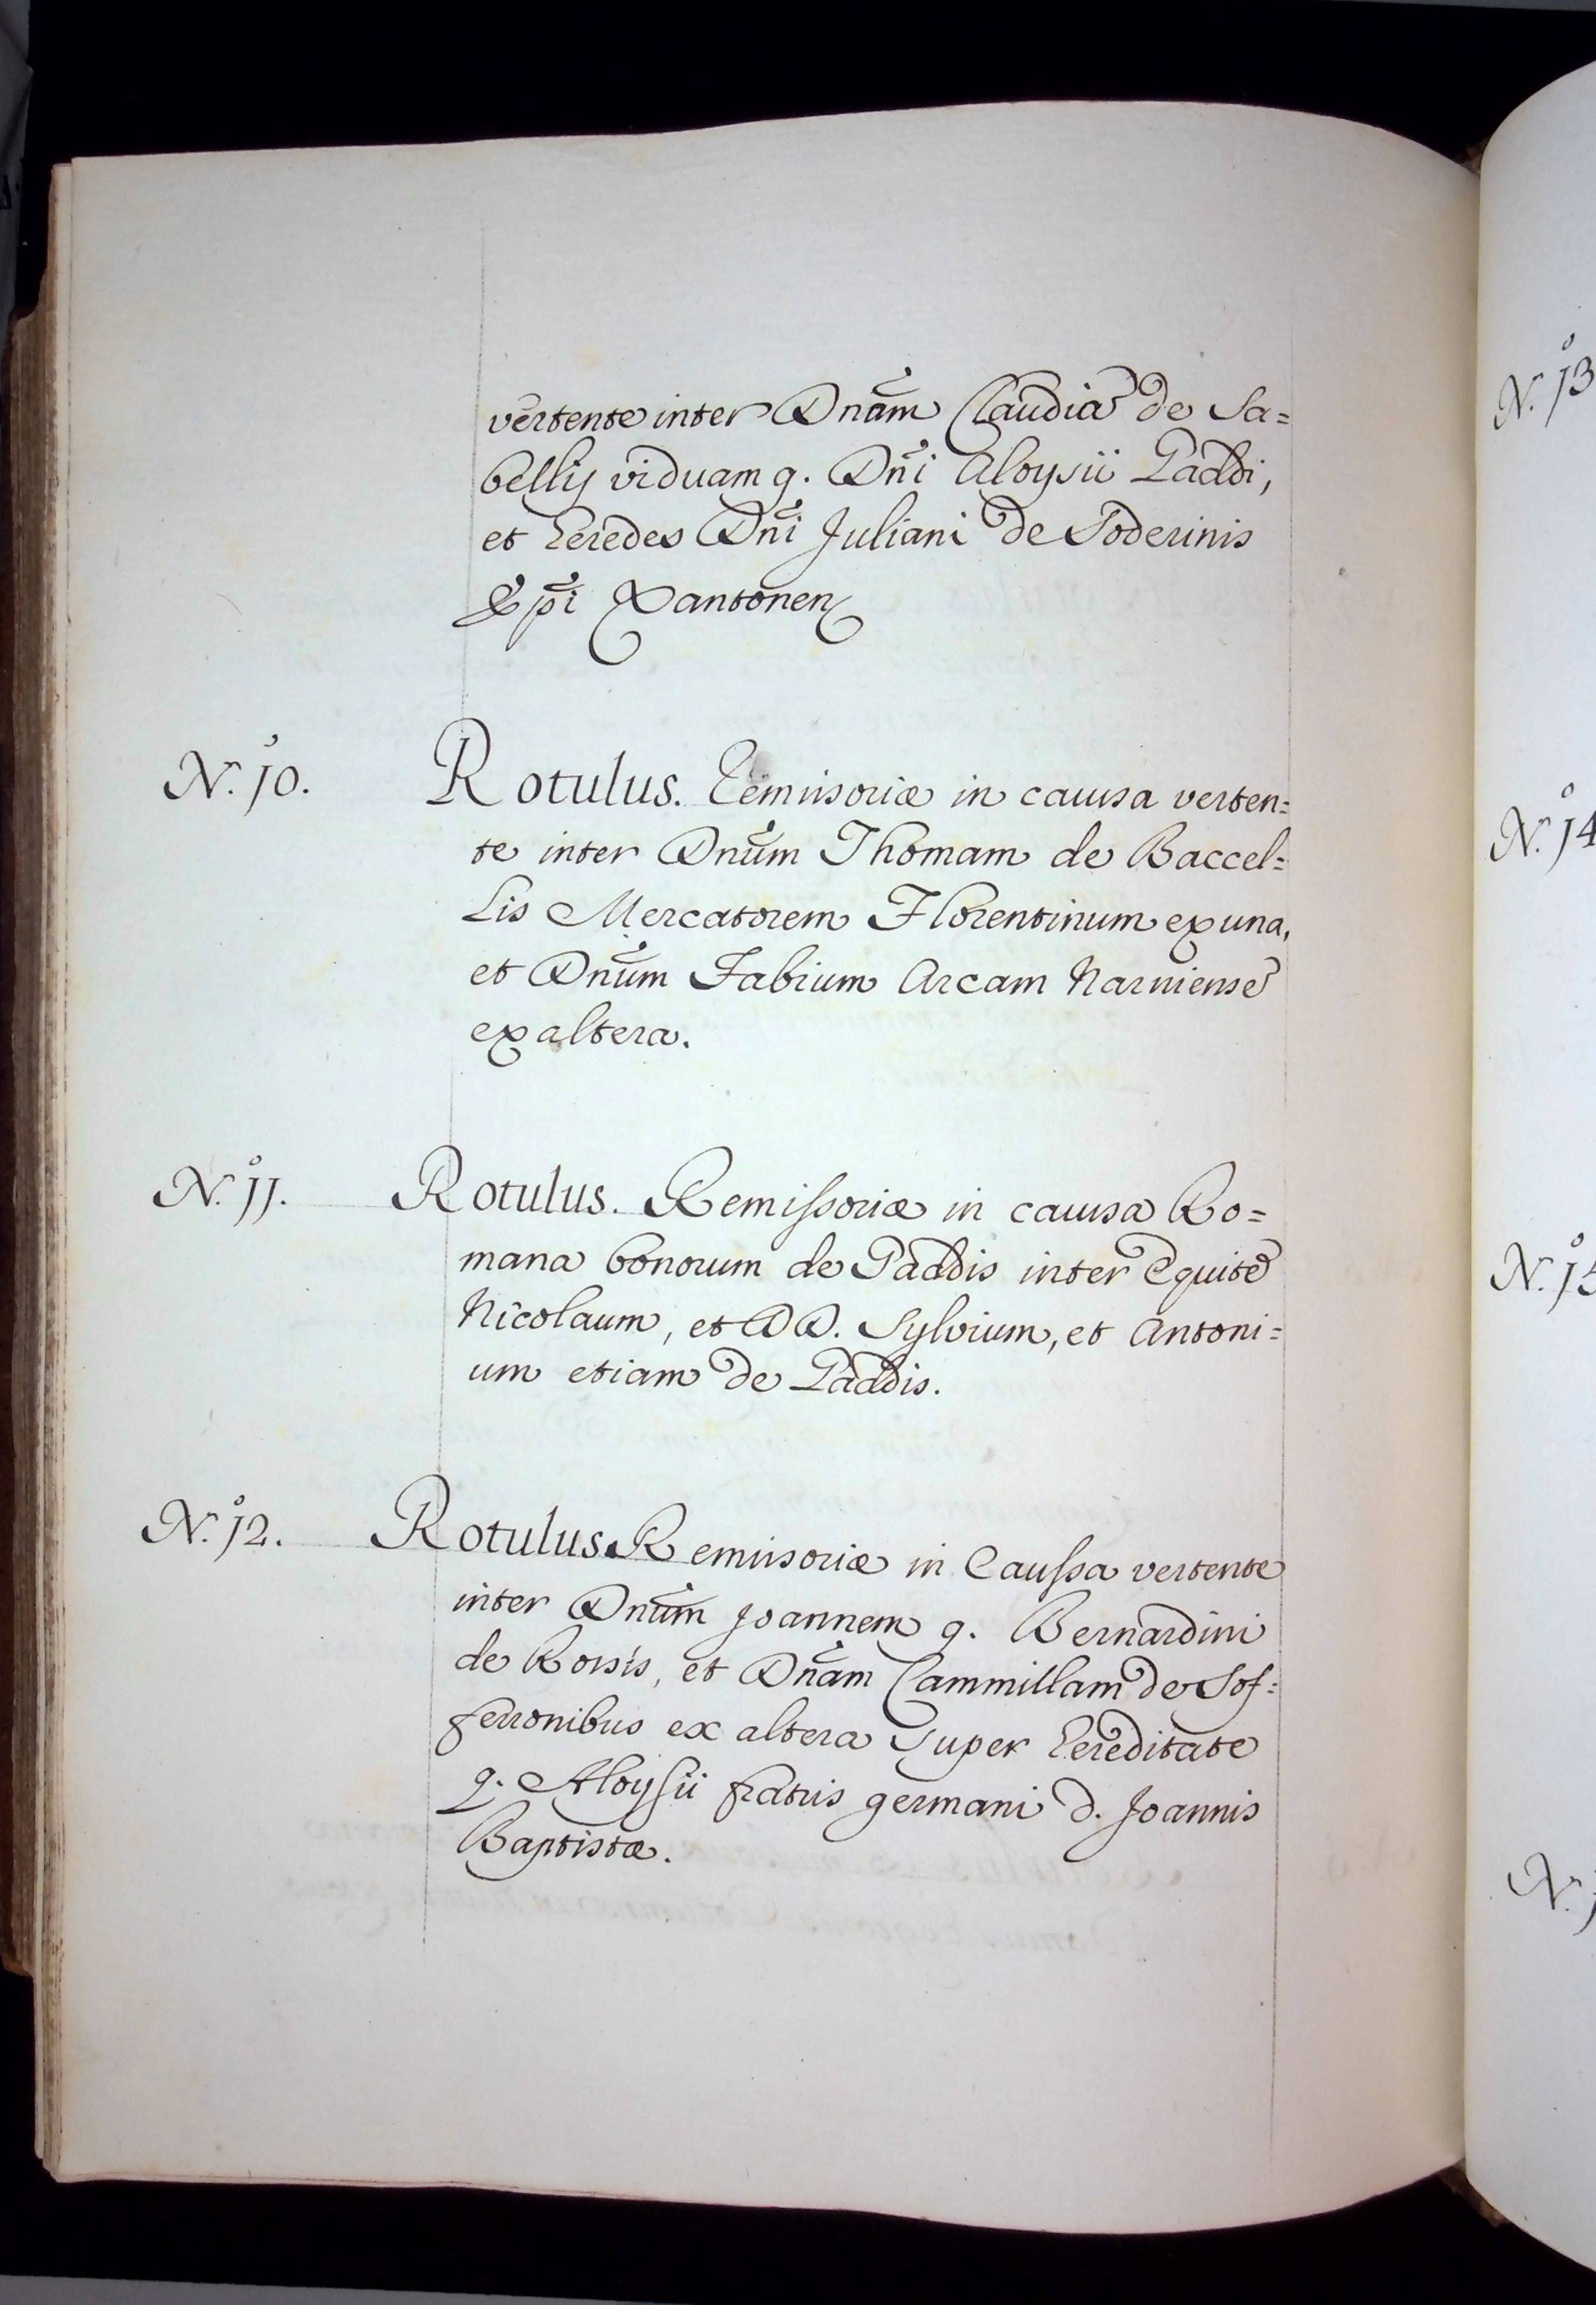 vertente inter Dnam Claudiã de Sa=
bellis viduam q. Dñi Aloysii Gaddi,
et heredes Dñi Juliani de Soderinis
Epĩ Xantonen
N.º 10. Rotulus. Remissoriæ in caussa verten=
te inter Dnum Thomam de Baccel=
lis Mercatorem Florentinum ex una,
et Dnum Fabium Arcam Narniensẽ
ex altera.
N.º 11. Rotulus. Remissoriæ in caussa Ro=
mana bonorum de Gaddis inter Equitẽ
Nicolaum, et DD. Sylvium, et Antoni=
um etiam de Gaddis.
N.º 12. Rotulus. Remissoriæ in Caussa vertente
inter Dnum Joannem q. Bernardini
de Rossis, et Dnam Cammillam de Sof=
ferronibus ex altera super hereditate
q. Aloysii fratris germani d. Joannis
Baptistæ.
N.º 13
N.º 14
N.º 15
N.